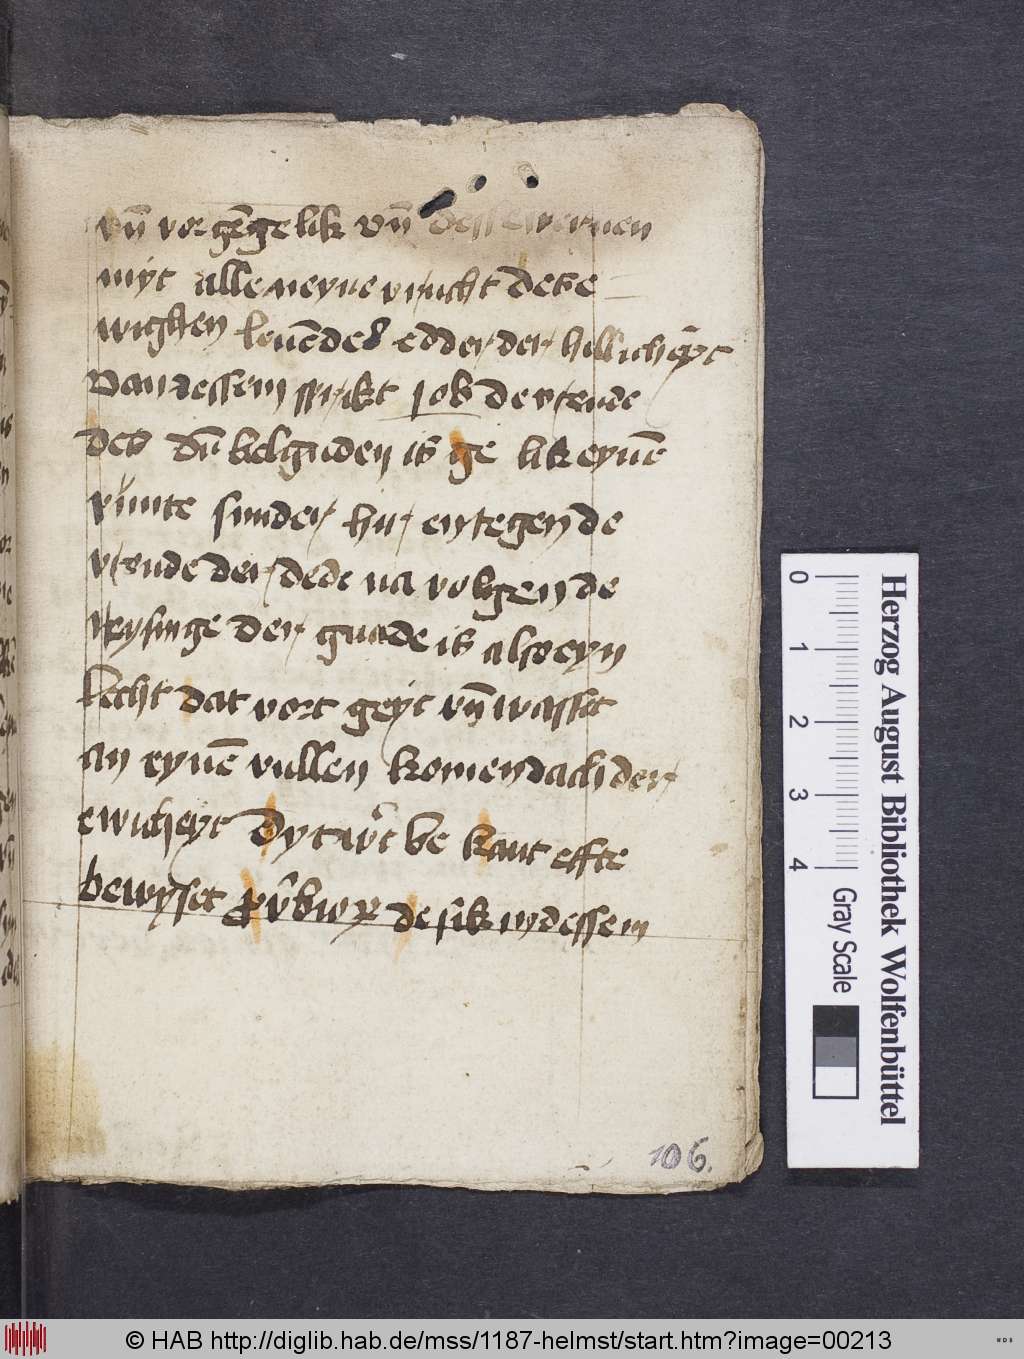 vn̄ vorgēgelik vn̄ desse wernen
myt alle neyne vrucht des e
wighen leuēdes edder der hillicheyt
Van dessem sprikt Job de rterde
des dn̄ belguden is ge lik eynē
vunte sunder hir entegen de
vronde der dede na volgen de
wysinge der gnade is also eyn
lecht dat vort geyt vn̄ wasset
an eynē vullen komen dach der
ewicheyt Dyt wert be kant effte
bewyset de sik in dessem
106.
Herzog August Bibliothek Wolfenbüttel
0 1 2 3 4
Gray Scale
© HAB http://diglib.hab.de/mss/1187-helmst/start.htm?image=00213